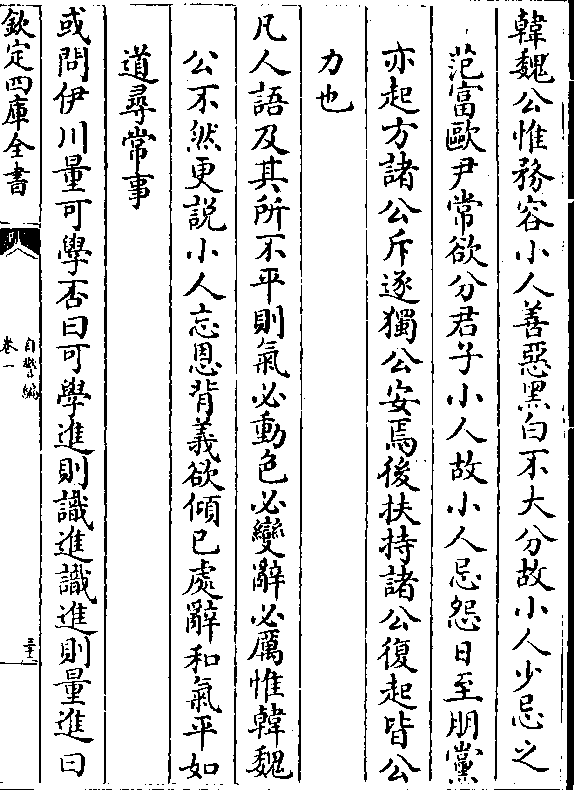 韓魏公惟務容小人善惡黑白不大分故小人少忌之
范富歐尹常欲分君子小人故小人忌怨日至朋黨
亦起方諸公斥逐獨公安焉後扶持諸公復起皆公
力也
凡人語及其所不平則氣必動色必變辭必厲惟韓魏
公不然更說小人忘恩背義欲傾已處辭和氣平如
道尋常事
或問伊川量可學否曰可學進則識進識進則量進曰
欽定四庫全書
自警編
卷一